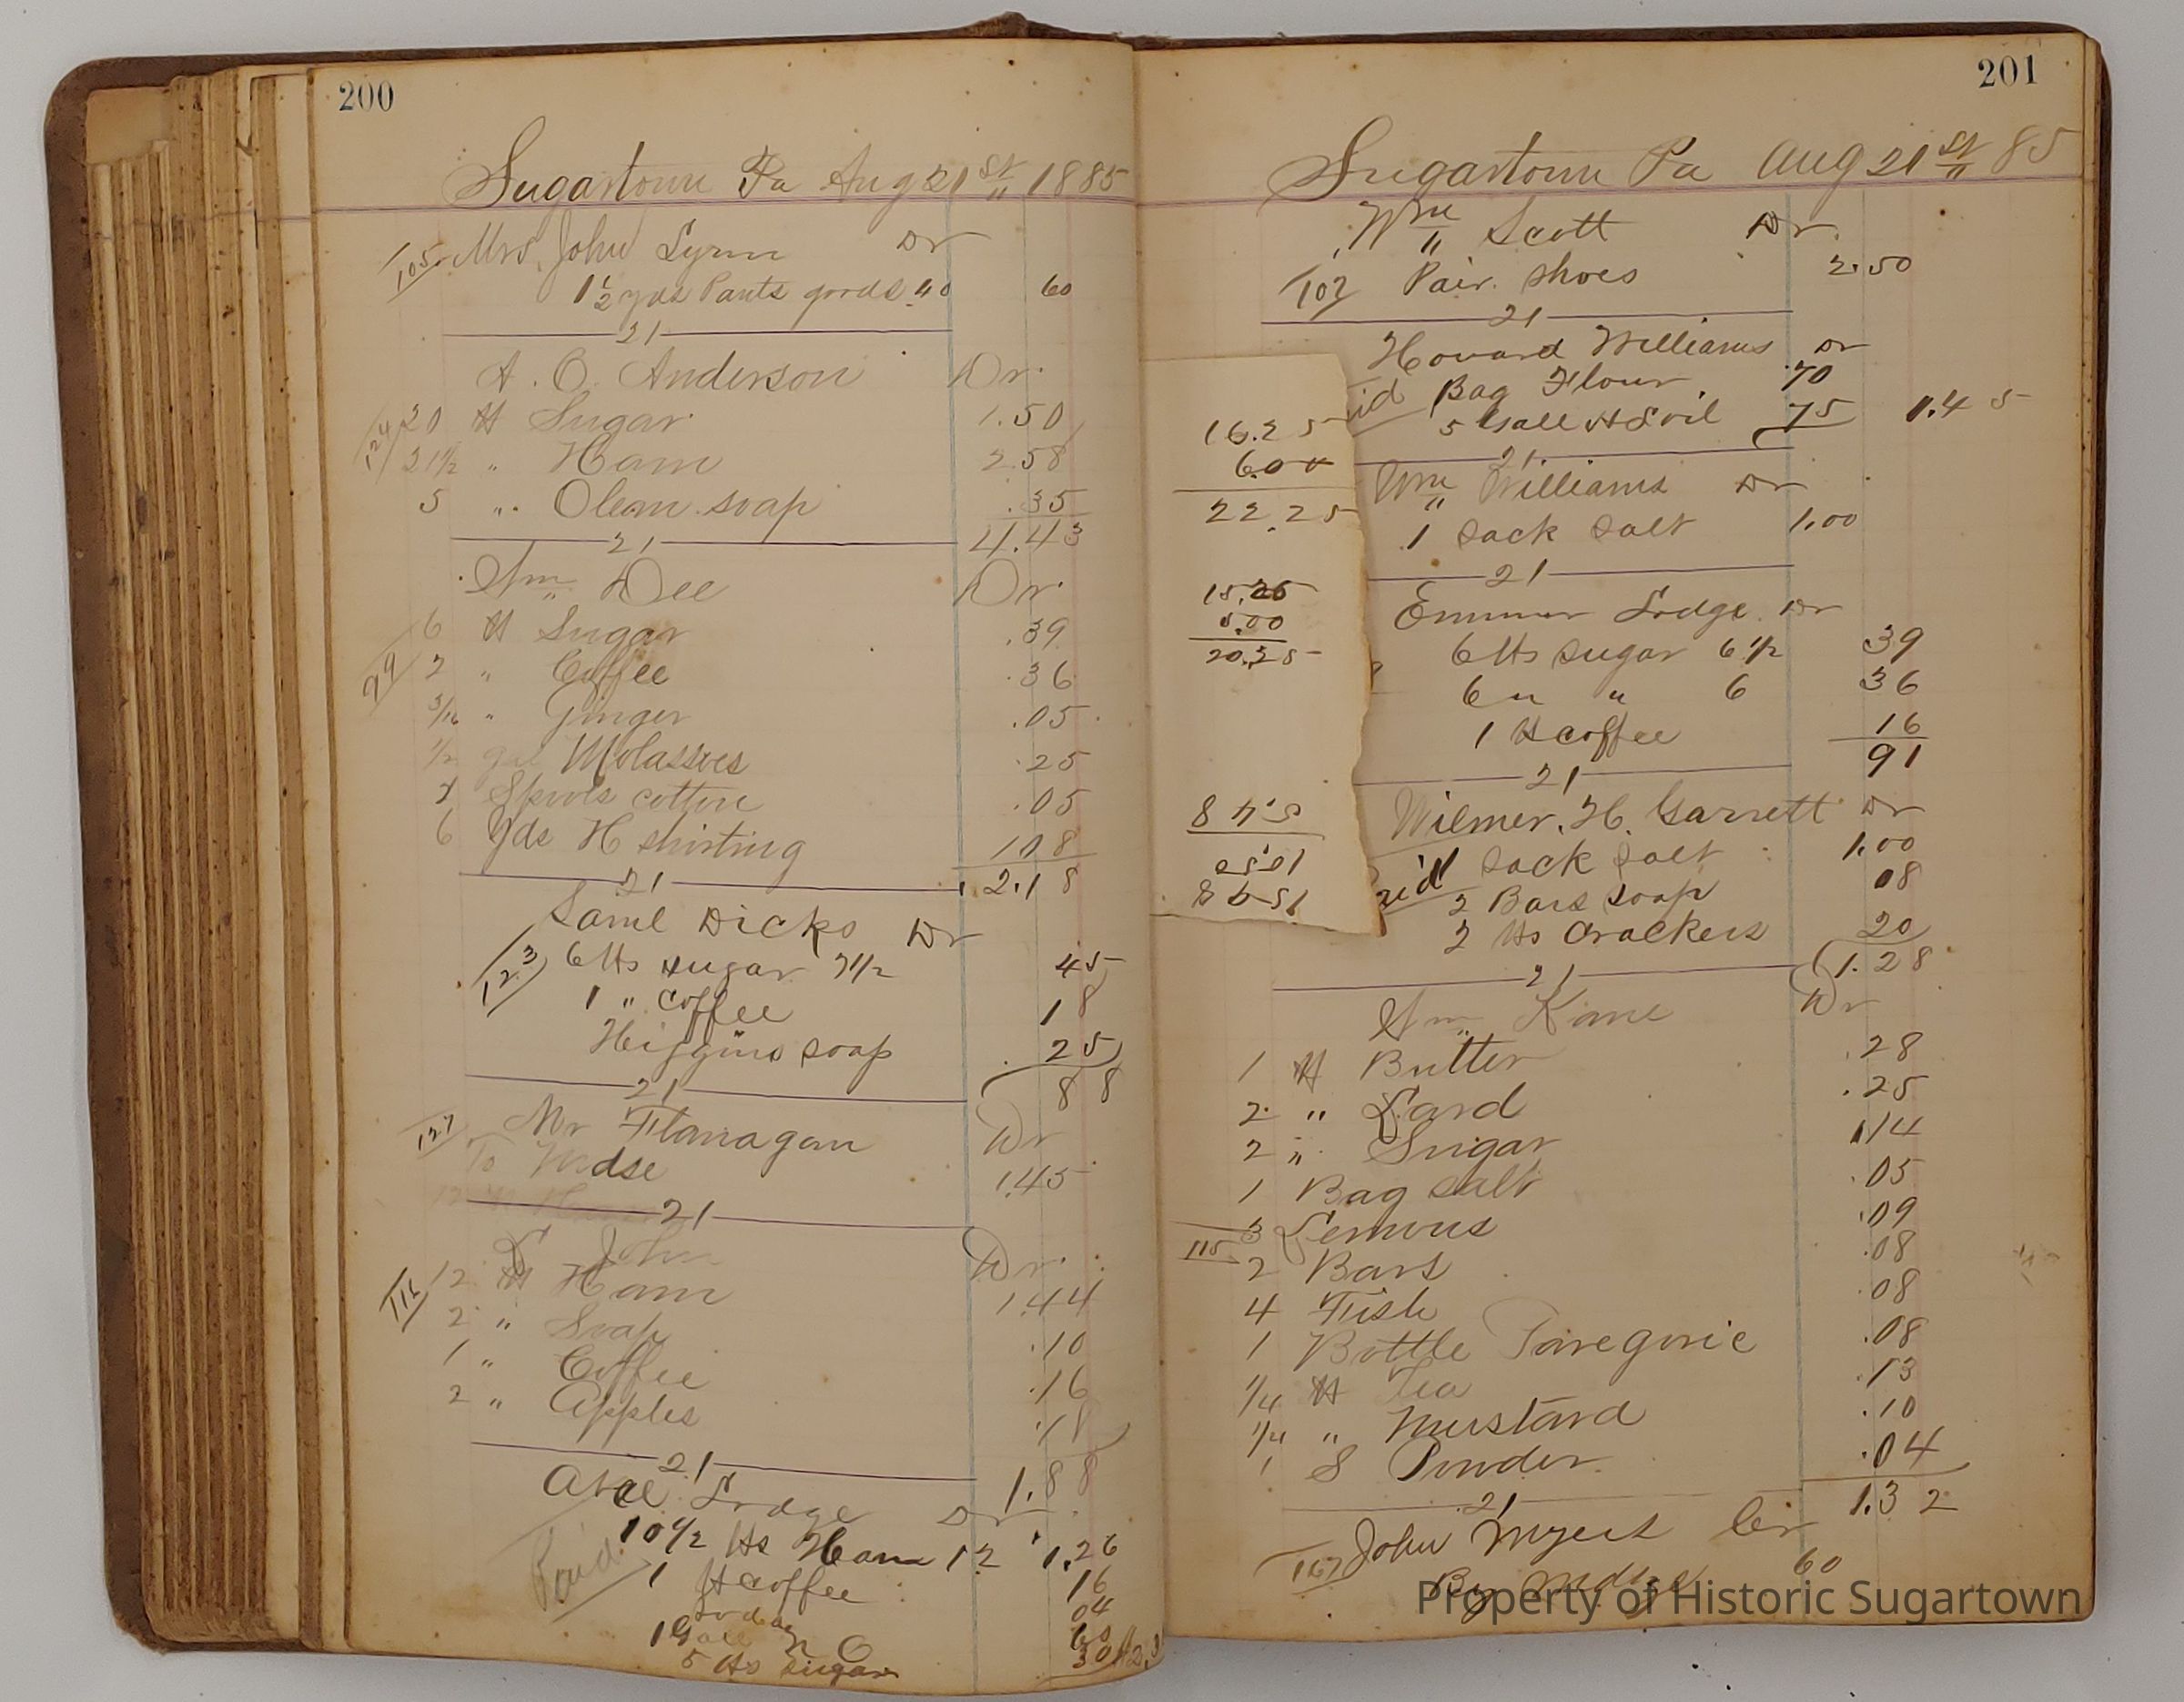 200
Sugartown Pa Aug 21st 1885
105 Mrs John Lynn Dr
1 1/2 yds Pants goods 40 60
21
A. O. Anderson Dr.
124
20 lb Sugar 1.50
21 1/2 " Ham 2.58
5 " Olean soap .35
21 4.43
Wm Dee Dr.
99
6 lb Sugar .39
2 " Coffee .36
3/16 " Ginger .05
1/2 gal Molasses .25
Spools cotton .05
6 yds H shirting 1.08
21 2.18
Saml Dicks Dr
123 6 lbs sugar 7 1/2 45
1 " coffee 18
Higgins soap 25
21 88
127 Mr Flanagan Dr
To Mdse 1.45
21
John Dr.
116
12 lb Ham 1.44
2 " Soap .10
1 " Coffee .16
2 " Apples .18
21 1.88
Lodge Dr
Paid
10 1/2 lbs Ham 12 1.26
1 lb coffee 16
04
1 Gall O 60
5 lbs sugar 30
201
Sugartown Pa Aug 21st 85
Wm Scott Dr.
107 Pair shoes 2.50
21
Howard Williams Dr
id Bag Flour .70
5 Gall H L oil 75 1.45
21
Wm Williams Dr
1 sack salt 1.00
21
Emmor Lodge Dr
6 lbs sugar 6 1/2 39
6 " " 6 36
1 lb coffee 16
21 91
Wilmer. H. Garrett Dr
aid 1 sack salt 1.00
2 Bars soap 08
2 lbs crackers 20
21 1.28
Wm Kane Dr
1 lb Butter .28
2 " Lard .25
2 " Sugar .14
1 Bag salt .05
115
3 Lemons .09
2 Bars .08
4 Fish .08
1 Bottle Paregoric .08
1/4 lb Tea .13
1/4 " Mustard .10
1 S Powder .04
21 1.32
167 John Myers Cr
By mdse 60
16.25
6.00
22.25
15.25
5.00
20.25
5.48
10.50
15.48
Property of Historic Sugartown